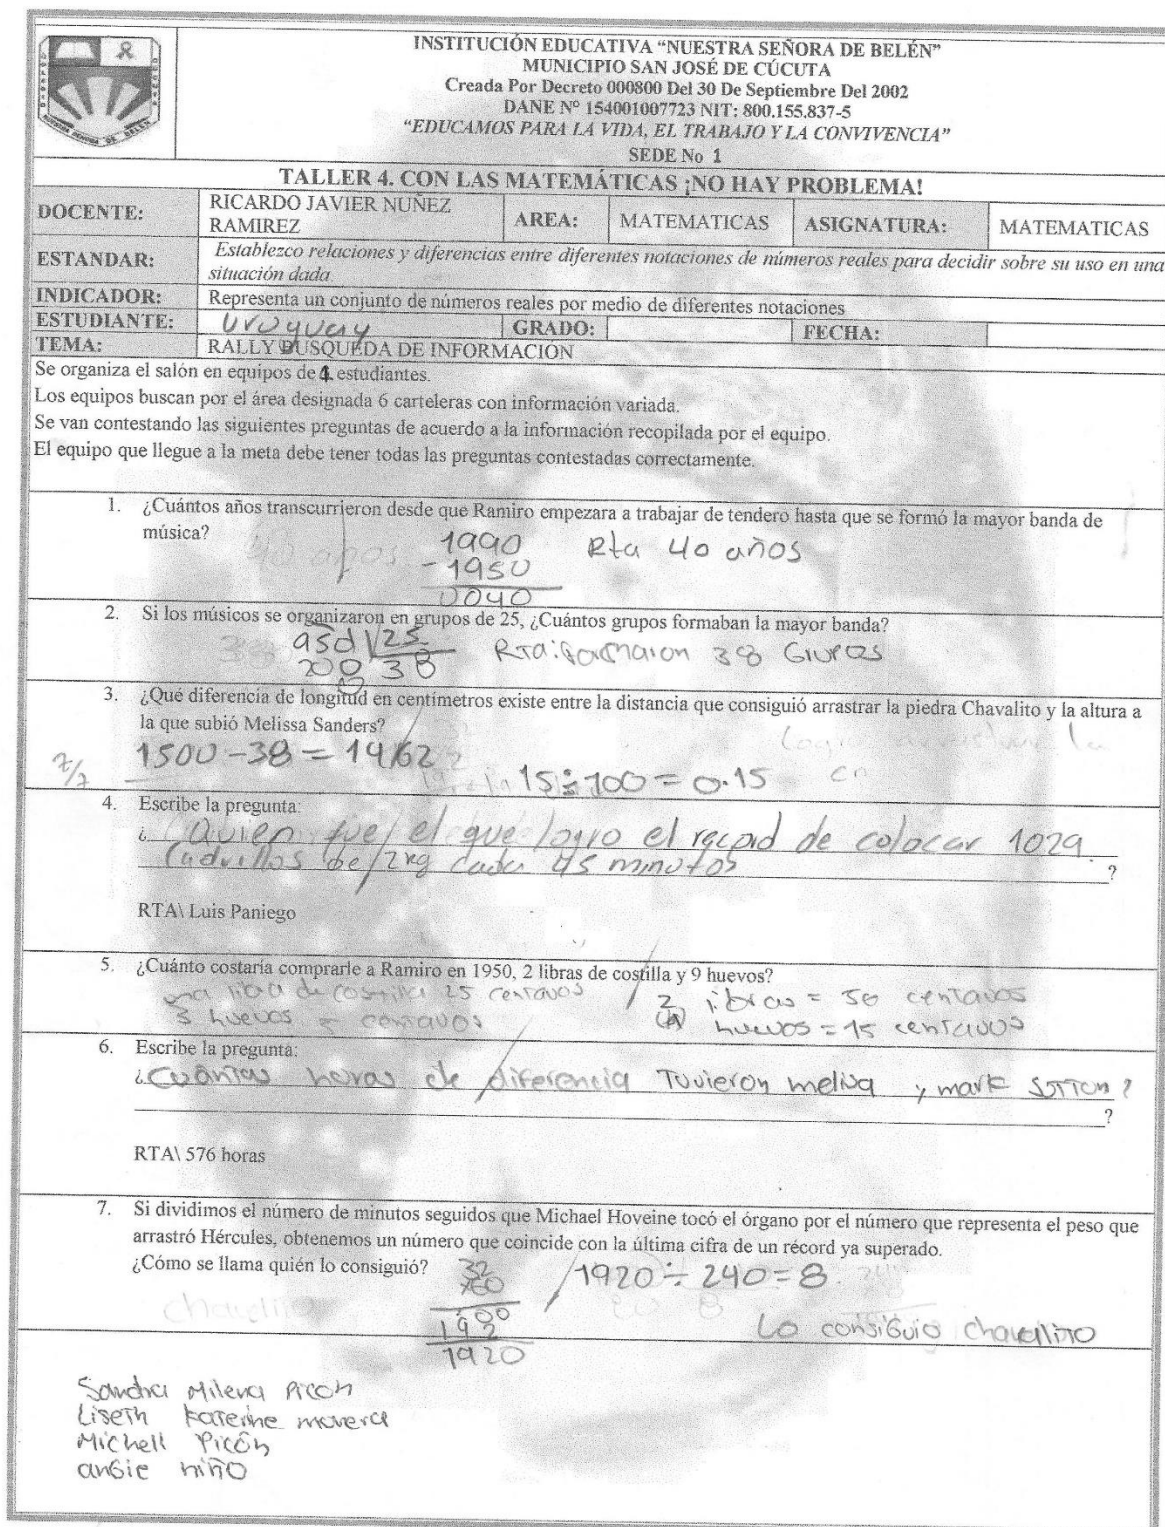 INSTITUCIÓN EDUCATIVA “NUESTRA SEÑORA DE BELÉN”
MUNICIPIO SAN JOSÉ DE CÚCUTA
Creada Por Decreto 000800 Del 30 De Septiembre Del 2002
DANE Nº 154001007723 NIT: 800.155.837-5
“EDUCAMOS PARA LA VIDA, EL TRABAJO Y LA CONVIVENCIA”
SEDE No 1
TALLER 4. CON LAS MATEMÁTICAS ¡NO HAY PROBLEMA!
DOCENTE: RICARDO JAVIER NUÑEZ RAMIREZ AREA: MATEMATICAS ASIGNATURA: MATEMATICAS
ESTANDAR: Establezco relaciones y diferencias entre diferentes notaciones de números reales para decidir sobre su uso en una
situación dada
INDICADOR: Representa un conjunto de números reales por medio de diferentes notaciones
ESTUDIANTE: Uruguay GRADO: FECHA:
TEMA: RALLY BUSQUEDA DE INFORMACIÓN
Se organiza el salón en equipos de 4 estudiantes.
Los equipos buscan por el área designada 6 carteleras con información variada.
Se van contestando las siguientes preguntas de acuerdo a la información recopilada por el equipo.
El equipo que llegue a la meta debe tener todas las preguntas contestadas correctamente.
1. ¿Cuántos años transcurrieron desde que Ramiro empezara a trabajar de tendero hasta que se formó la mayor banda de
música?
40 años 1990 Rta 40 años
-1950
0040
2. Si los músicos se organizaron en grupos de 25, ¿Cuántos grupos formaban la mayor banda?
38 950 25 Rta: formaron 38 Grupos
200 38
3. ¿Qué diferencia de longitud en centímetros existe entre la distancia que consiguió arrastrar la piedra Chavalito y la altura a
la que subió Melissa Sanders?
7/7 1500-38=1462
15÷100=0.15 cn
4. Escribe la pregunta:
¿Quien fue el que logro el record de colocar 1029
ladrillos de 2kg cada 45 minutos?
RTA\ Luis Paniego
5. ¿Cuánto costaría comprarle a Ramiro en 1950, 2 libras de costilla y 9 huevos?
una libra de costilla 25 centavos 2 libras = 50 centavos
3 huevos 5 centavos huevos = 15 centavos
6. Escribe la pregunta:
¿Cuántas horas de diferencia Tuvieron melisa y mark sutton?
?
RTA\ 576 horas
7. Si dividimos el número de minutos seguidos que Michael Hoveine tocó el órgano por el número que representa el peso que
arrastró Hércules, obtenemos un número que coincide con la última cifra de un récord ya superado.
¿Cómo se llama quién lo consiguió?
32 1920÷240=8
x60
00
192
1920
Lo consiguio chavellito
Sandra Milena Picon
Liseth Katerine movera
Michell Picón
angie niño